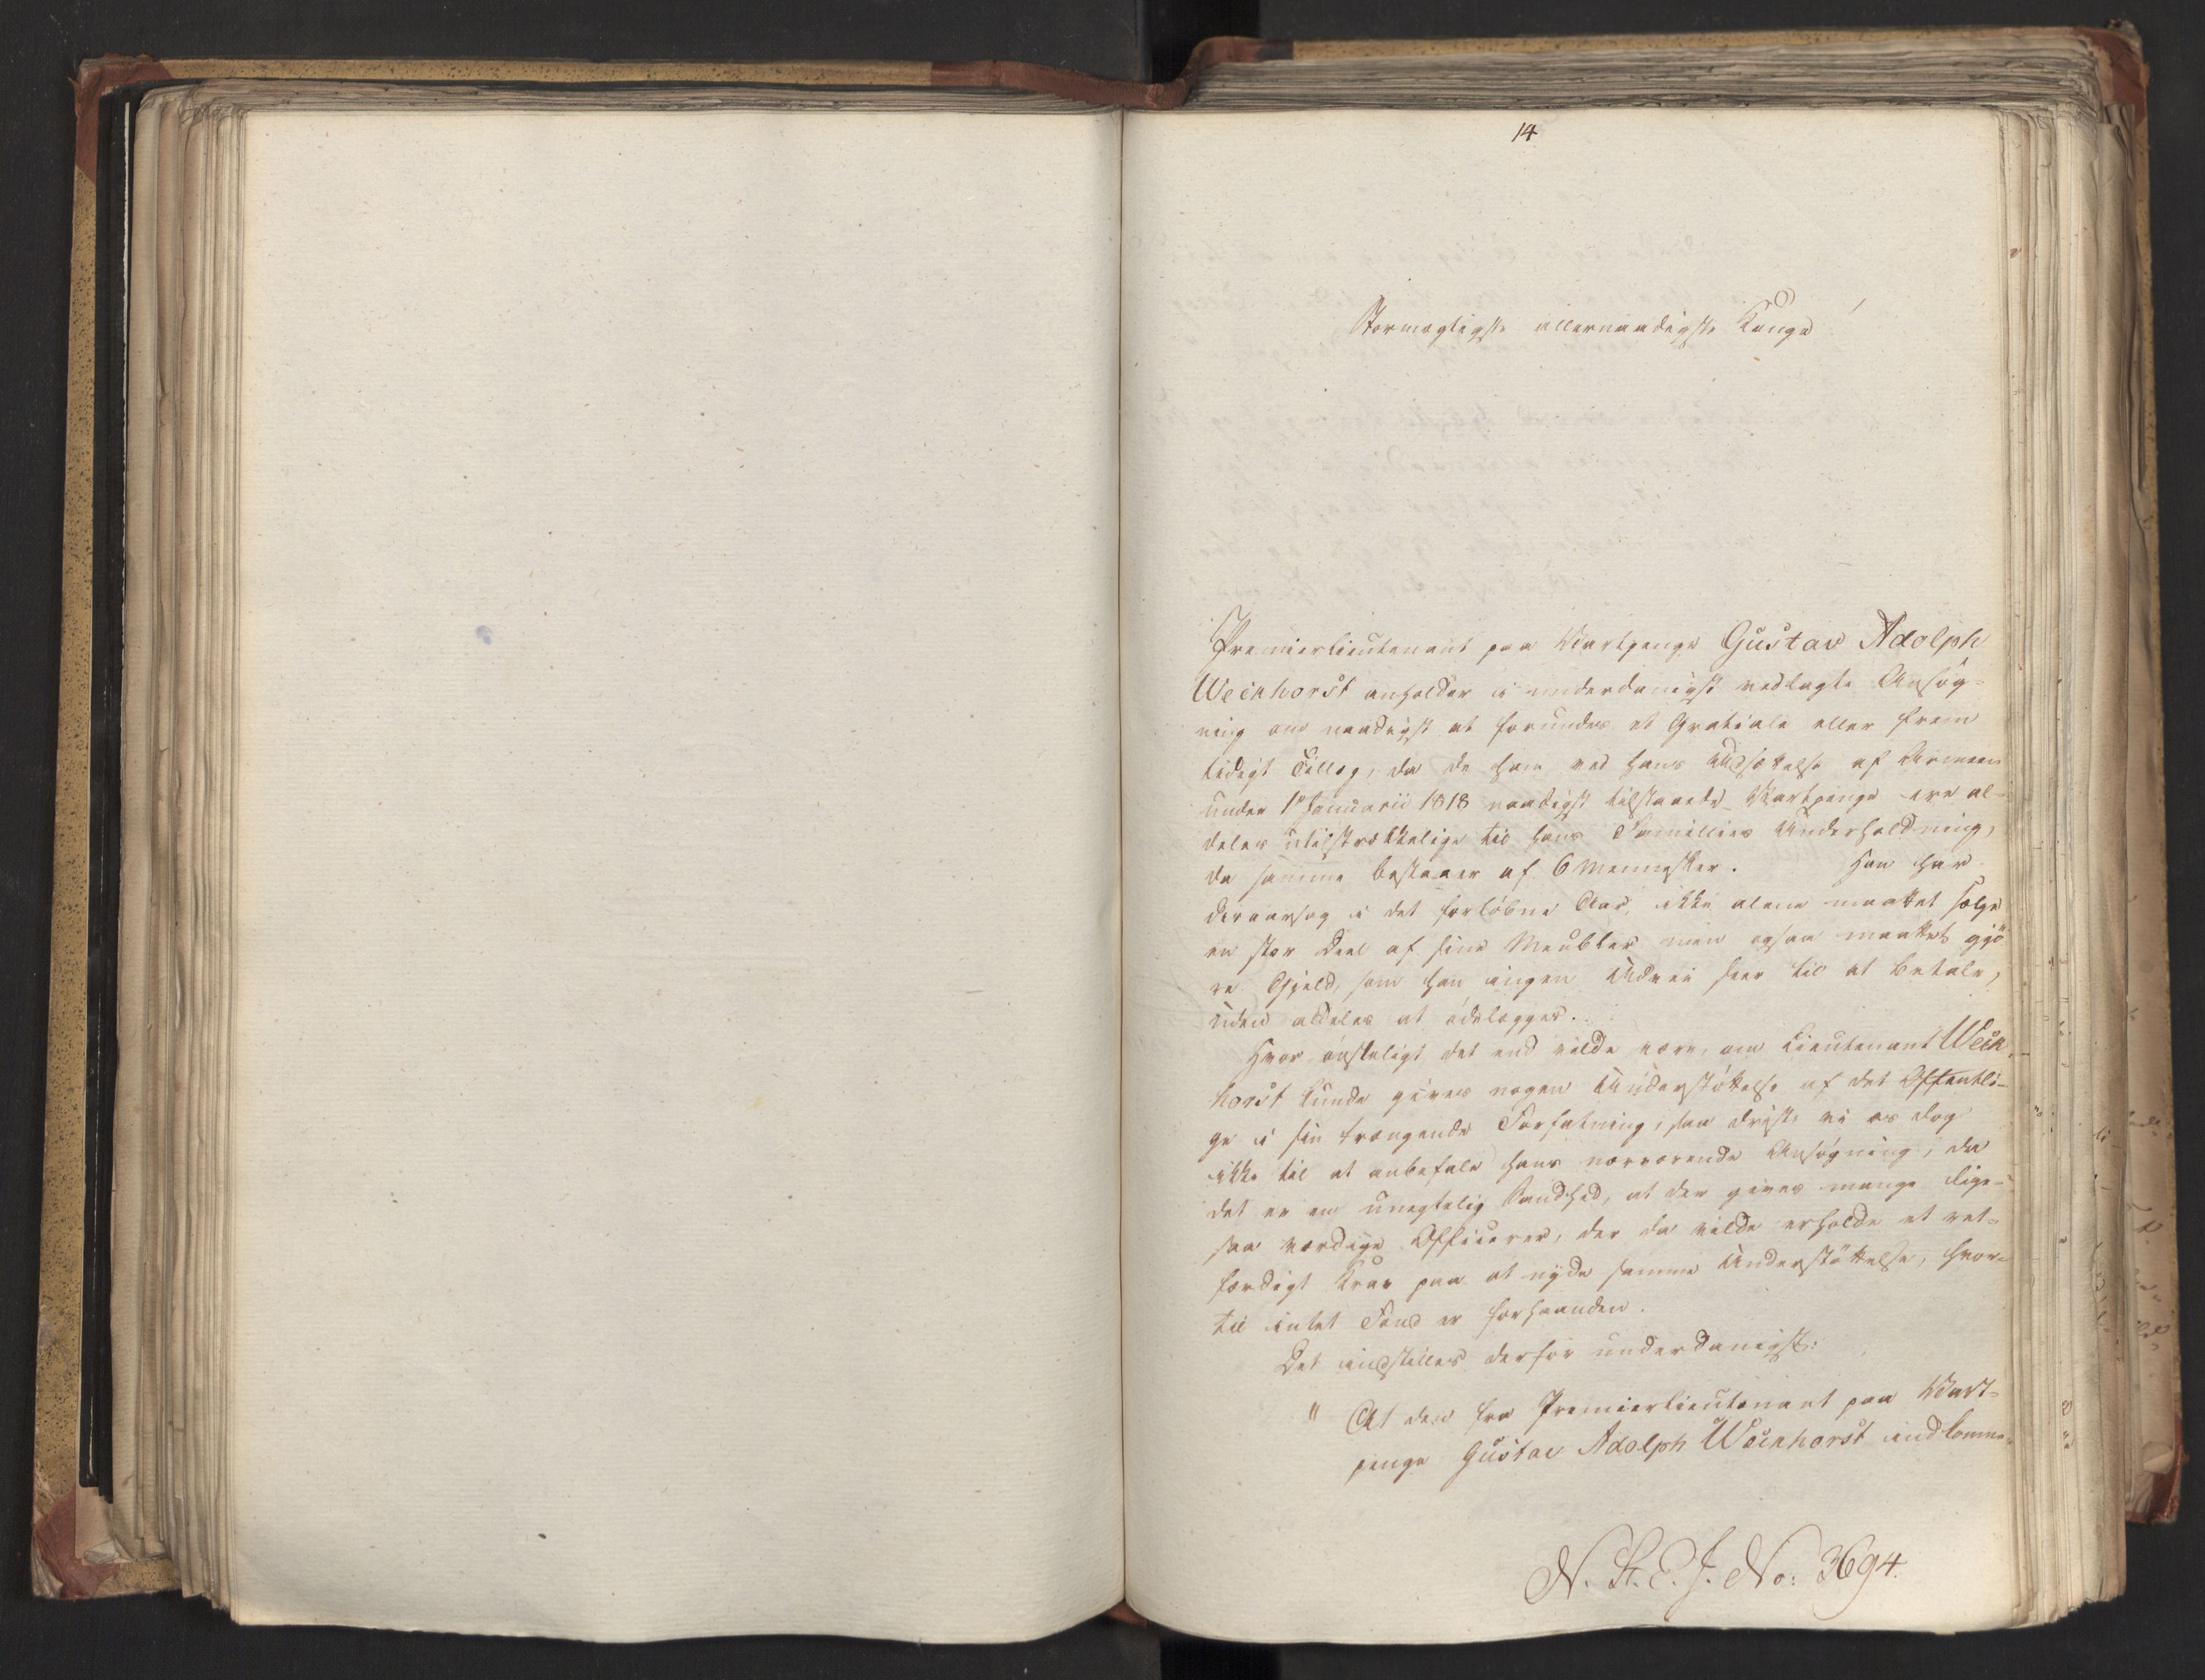 14
Stormægtigste allernaadigste Konge!
Premierlieutenant paa Vartpenge Gustav Adolph
Weinhorst anholder i underdanigst vedlagte Ansøg-
ning om naadigst at forundes et Gratiale eller frem
tidigt Tillæg, da de ham ved hans Udsættelse af Armeen
under 1ste Januarii 1818 naadigst tilstaaede Vartpenge ere al-
deles utilstrækkelige til hans Families Underholdning,
da samme bestaaer af 6 Mennesker. Han har
deraarsag i det forløbne Aar, ikke alene maattet sælge
en stor Deel af sine Meubler men ogsaa maattet gjö
re Gjeld, som han ingen Udvei seer til at betale,
uden aldeles at ödelægges.
Hvor önskeligt det end vilde være, om Lieutenant Wein
horst kunde gives nogen Understöttelse af det Offentli-
ge i sin trængende Forfatning, saa dröste vi os dog
ikke til at anbefale hans nærværende Ansögning, da
det er en unegtelig Sandhed, at der gives mange lige-
saa værdige Officierer, der da vilde erholde et ret-
færdigt Krav paa at nyde samme Understöttelse, hvor-
til intet Fond er forhaanden.
Det indstilles derfor underdanigst:
" At den fra Premierlieutenant paa Vart-
penge Gustav Adolph Weinhorst indkomne
N. St. E. J. No: 3694.